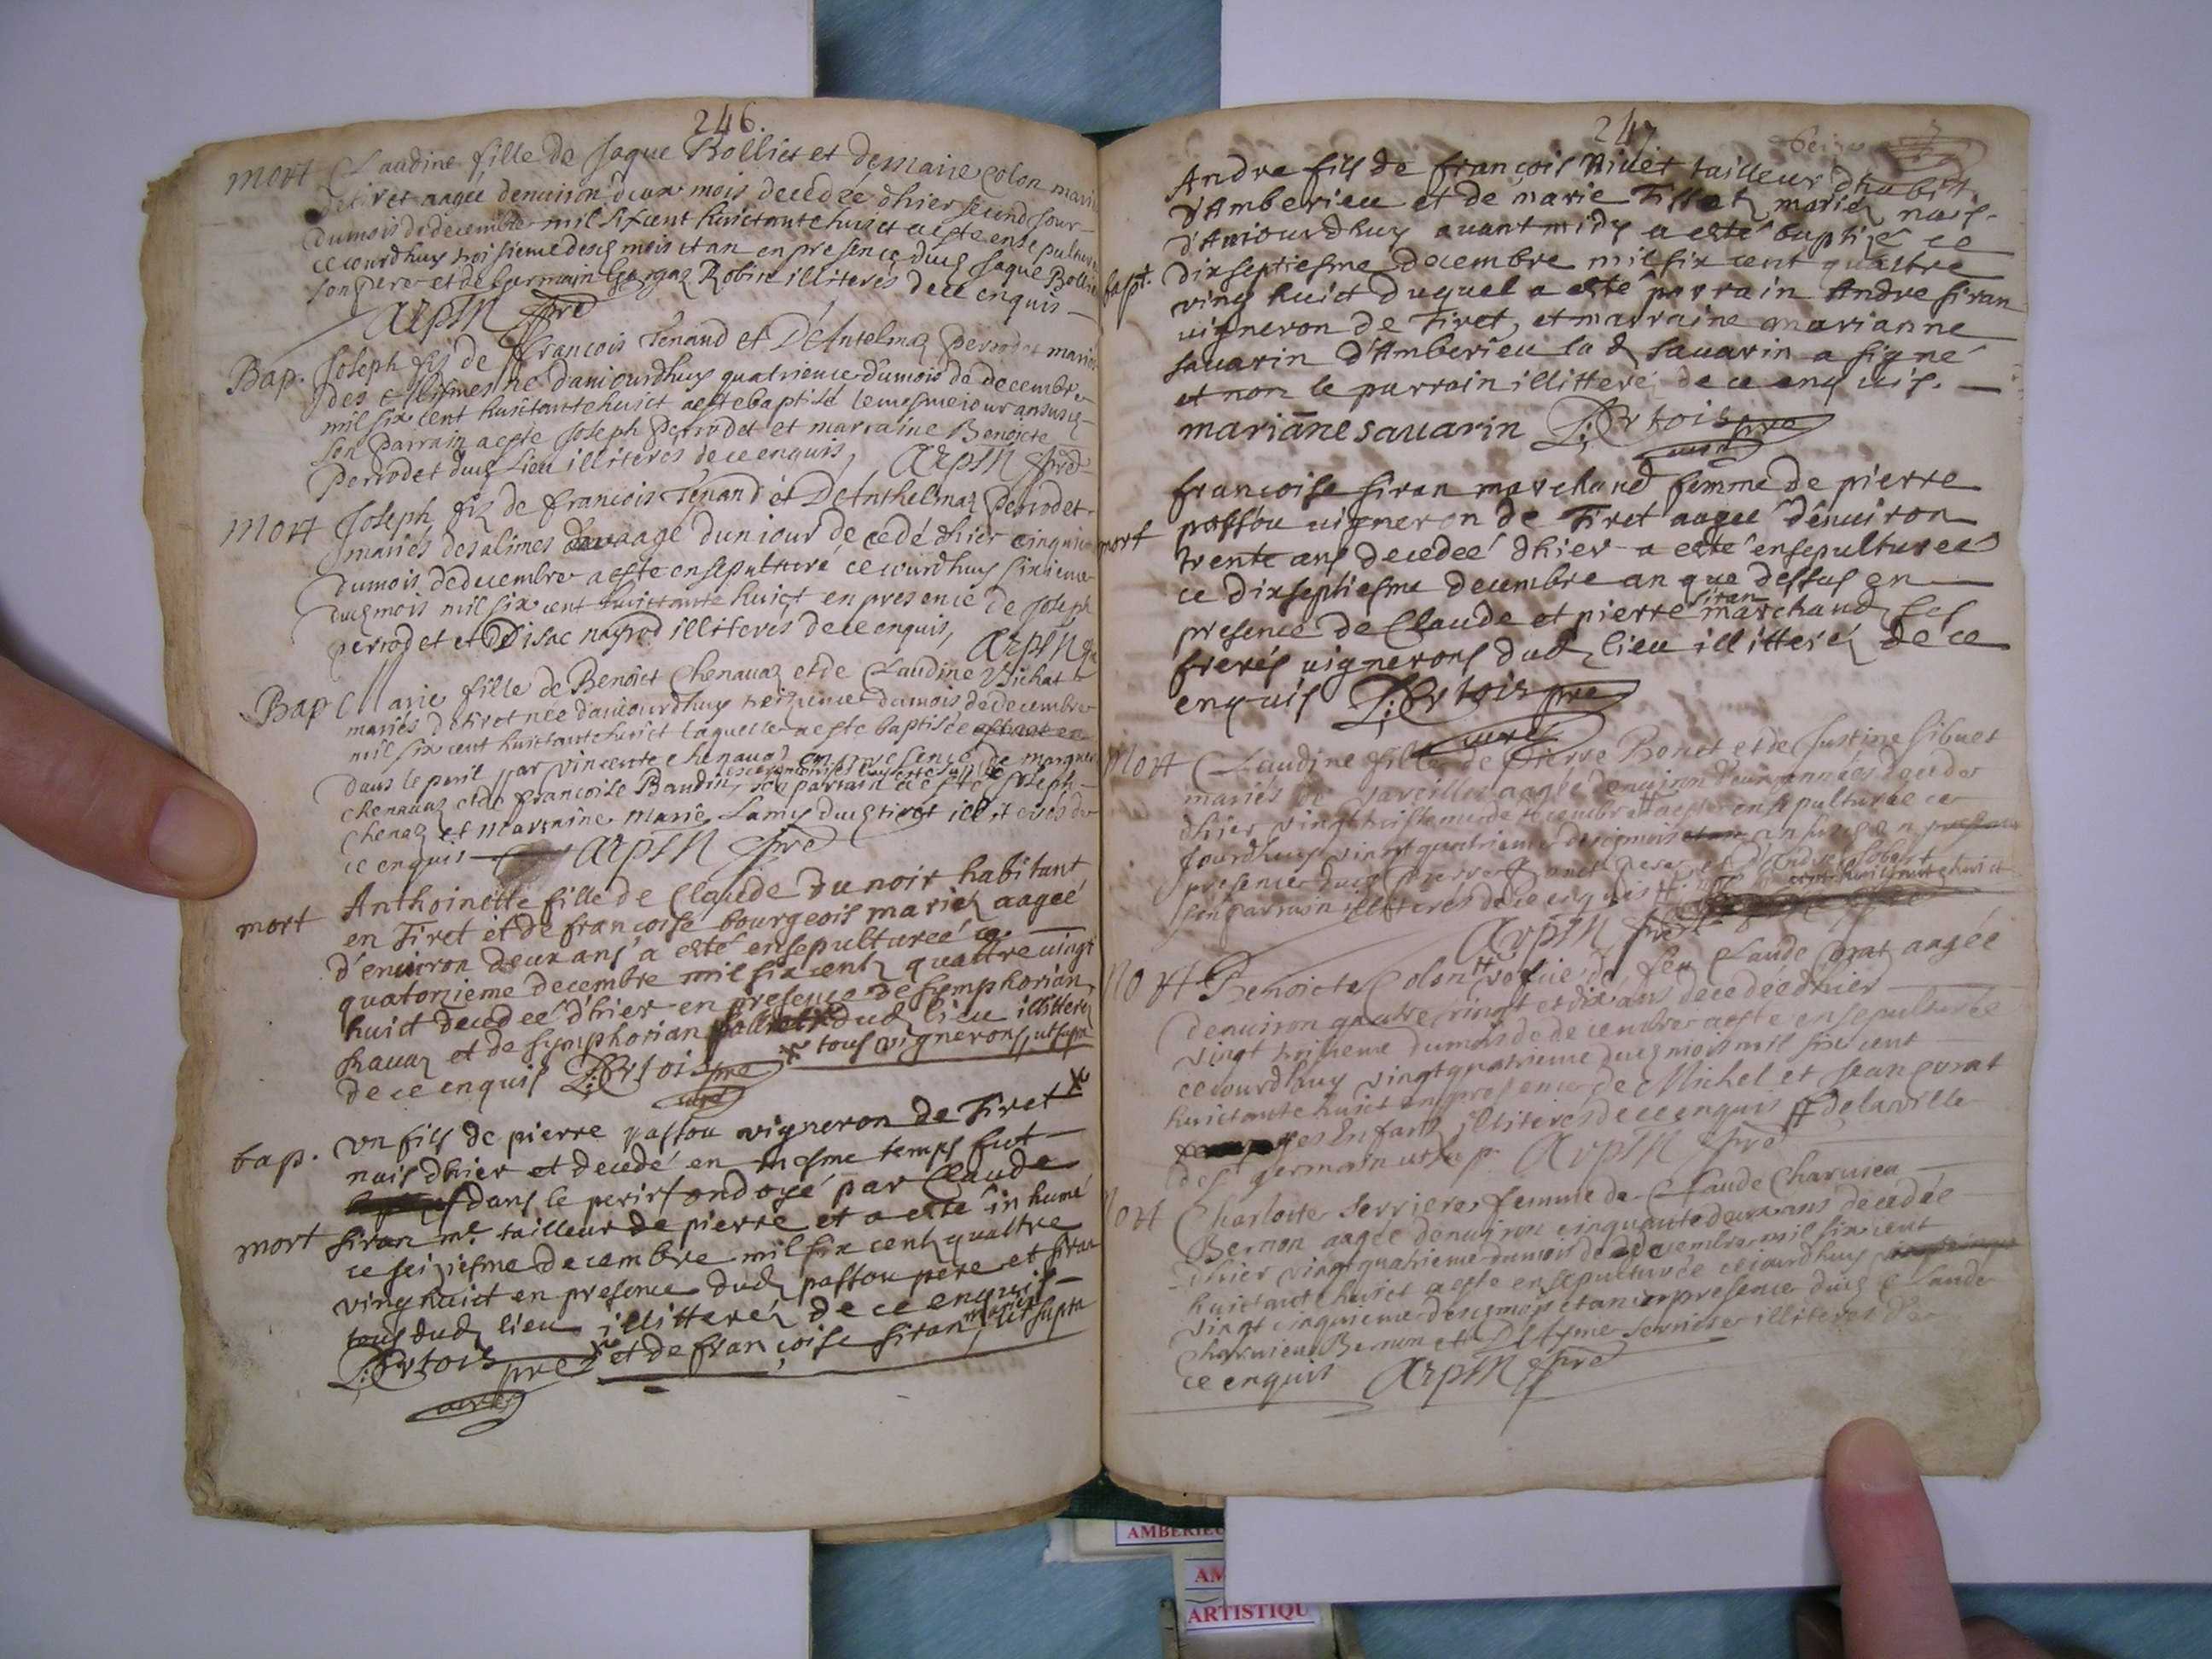 246.
mort Claudine fille de Jaque Bolliet et de marie Colon mariés
de tiret aagée denuiron deux mois decedée dhier second jour
du mois de decembre mil six cent huictante huict a esté ensepulturée
ce iourdhuy troisieme desd mois et an en presence dud Jaque Bolliet
son pere et de Germain Robin illiterés de ce enquis
Arpin pre
Bap. Joseph fiz de francois Tenand et D'Antelmaz Perrodet mariés
des Allimes né daujourdhuy quatrieme du mois de decembre
mil six cent huictante huict a esté baptisé le mesme iour an susd
son parrain a esté Joseph Perrodet et marraine Benoicte
Perrodet dud lieu illiterés de ce enquis, Arpin pre
Mort Joseph fiz de francois Tenand et D'Anthelmaz Perrodet
mariés des alimes aagé dun iour decedé dhier cinquieme
du mois de decembre a esté ensepulturé ce iourdhuy sixieme
dud mois mil six cent huictante huict en presence de Joseph
perrodet et D'isac nagrod illiterés de ce enquis, Arpin pre
Bap Marie fille de Benoict Chenavaz et de Claudine Bichat
mariés de tiret née daujourdhuy treizieme du mois de decembre
mil six cent huictante huict laquelle a esté baptisée
dans le peril par vincente chenavaz en presence de
chenavaz et de francoise Baudin, son parrain a esté Joseph
Chenaz et Marraine Marie Lamy dud tiret illiterés de
ce enquis Arpin pre
mort Anthoinette fille de Claude Dunoir habitant
en Tiret et de françoise bourgeois mariez aagée
d'enuiron deux ans a esté ensepulturée ce
quatorzieme decembre mil six centz quattre vingt
huict decedée d'hier en presence de Symphorian
Ravaz et de Symphorian dud lieu illitterez
de ce enquis D: Ortois pre tous vignerons, ut supra
curé
bap. Un fils de pierre passou vigneron de Tiret
nais dhier et decedé en mesme temps fut
dans le peril ondoyé par Claude
mort Siran mre tailleur de pierre et a esté inhumé
ce seiziesme decembre mil six centz quattre
ving huict en presence dud passou pere et siran
tous dud lieu illitterez de ce enquis
D: Ortois pre et de françoise siran mariez ut supra
curé
247
Andre fils de françois Rivet tailleur d'habit
d'Amberieu et de marie Tissot mariez nais
d'aujourdhuy avant midy a esté baptizé ce
bapt. dixseptiesme decembre mil six cent quattre
ving huict duquel a esté parrain Andre siran
vigneron de Tiret, et marraine marianne
sauarin d'Amberieu lad sauarin a signé
et non le parrain illitteré de ce enquis.
marianne sauarin D: Ortois pre
curé
francoise siran marchand femme de pierre
mort passou vigneron de Tiret aagée d'enuiron
trente ans decedeé dhier a esté ensepultureé
ce dixseptiesme decembre an que dessus en
presence de Claude et pierre siran marchand ses
freres vignerons dud lieu illitterez de ce
enquis D: Ortois pre
curé
Mort Claudine fille de Pierre Bonet et de Justine Sibuet
mariés de Vareilles aagée denuiron deux années decedée
dhier vingt troisieme de decembre a esté ensepulturée ce
Jourdhuy vingt quatrieme desd mois an susd en
presence dud Pierre Bonet pere et
son parrain illiterés de ce enquis
Arpin pre
Mort Benoicte Colon vefue de feu Claude Corat aagée
denuiron quatre vingt et dix ans decedée dhier
vingt troisieme du mois de decembre a esté ensepulturée
ce iourdhuy vingt quatrieme dud mois mil six cent
huictante huict en presence de Michel et Jean Corat
ses Enfans illiterés de ce enquis de la ville
de st germain ut sup. Arpin pre
Mort Charlotte Serriere femme de Claude Charuieu
Bernon aagée denuiron cinquante deux ans decedée
dhier vingt quatrieme du mois de decembre mil six cent
huictante huict a esté ensepulturée ce iourdhuy
vingt cinquieme desd mois et an en presence dud Claude
Charuieu Bernon et Serriere illiterés de
ce enquis Arpin pre
AMBERIEU
AM
ARTISTIQU